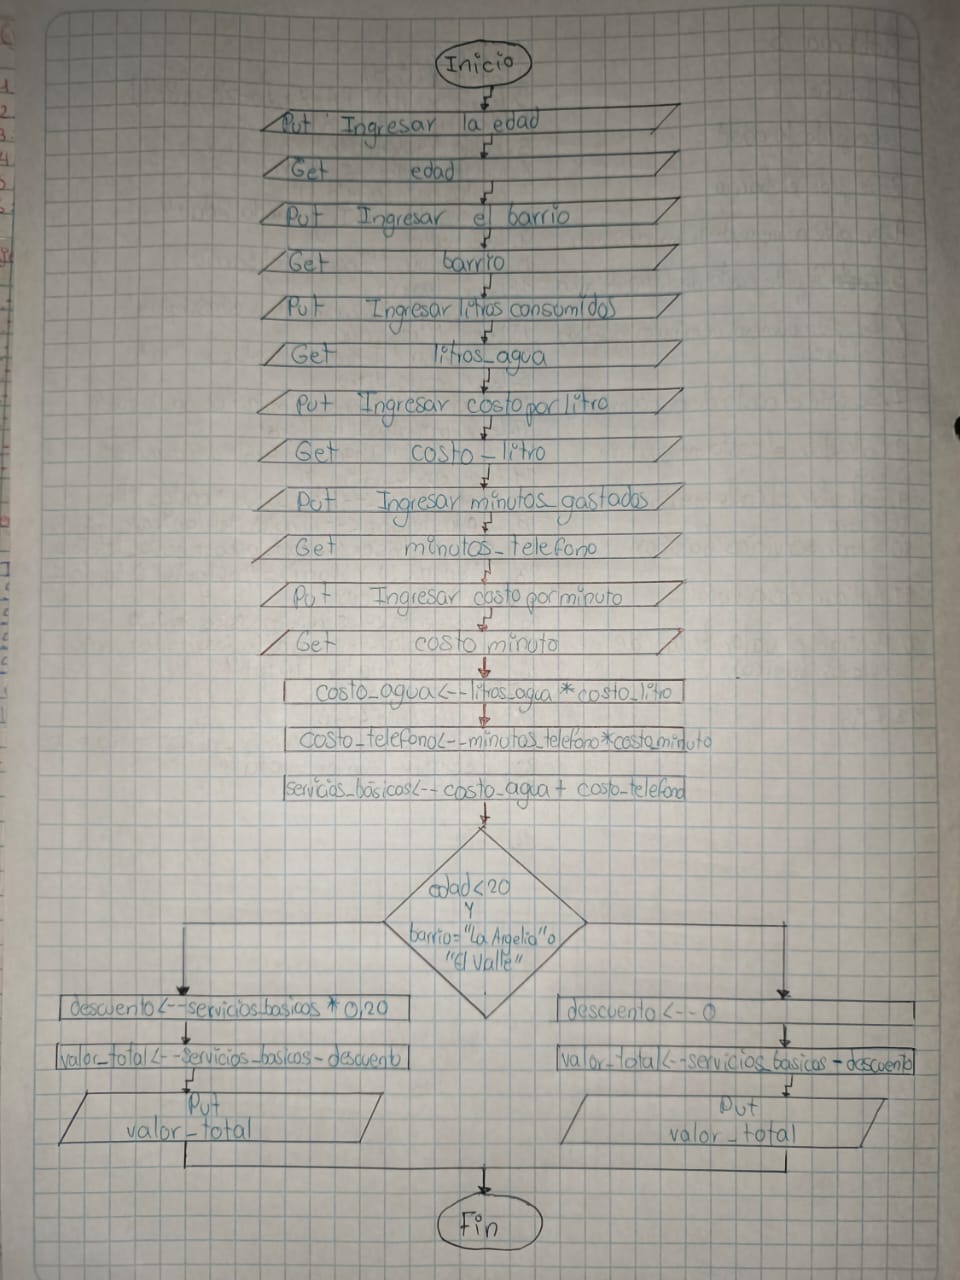 Inicio
Put Ingresar la edad
Get edad
Put Ingresar el barrio
Get barrio
Put Ingresar litros consumidos
Get litros_agua
Put Ingresar costo por litro
Get costo_litro
Put Ingresar minutos gastados
Get minutos_telefono
Put Ingresar costo por minuto
Get costo minuto
costo_agua<--litros_agua*costo_litro
costo_telefono<--minutos_telefono*costo_minuto
servicios_básicos<-- costo_agua + costo_telefono
edad<20
Y
barrio="La Argelia" o
"El Valle"
descuento<--servicios_basicos * 0,20
descuento <--0
valor_total<--servicios_basicos-descuento
valor_total<--servicios_basicos-descuento
Put
valor_total
Put
valor_total
Fin